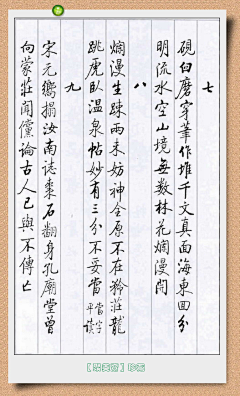 七
硯臼磨穿筆作堆千文真面海東回分
明流水空山境無數林花爛漫開
八
爛漫生踈兩未妨神全原不在矜莊龍
跳虎臥溫泉帖妙有三分不妥當當字平讀
九
宋元嚮搨汝南誌棗石翻身孔廟堂曾
向蒙莊聞儻論古人已與不傳亡